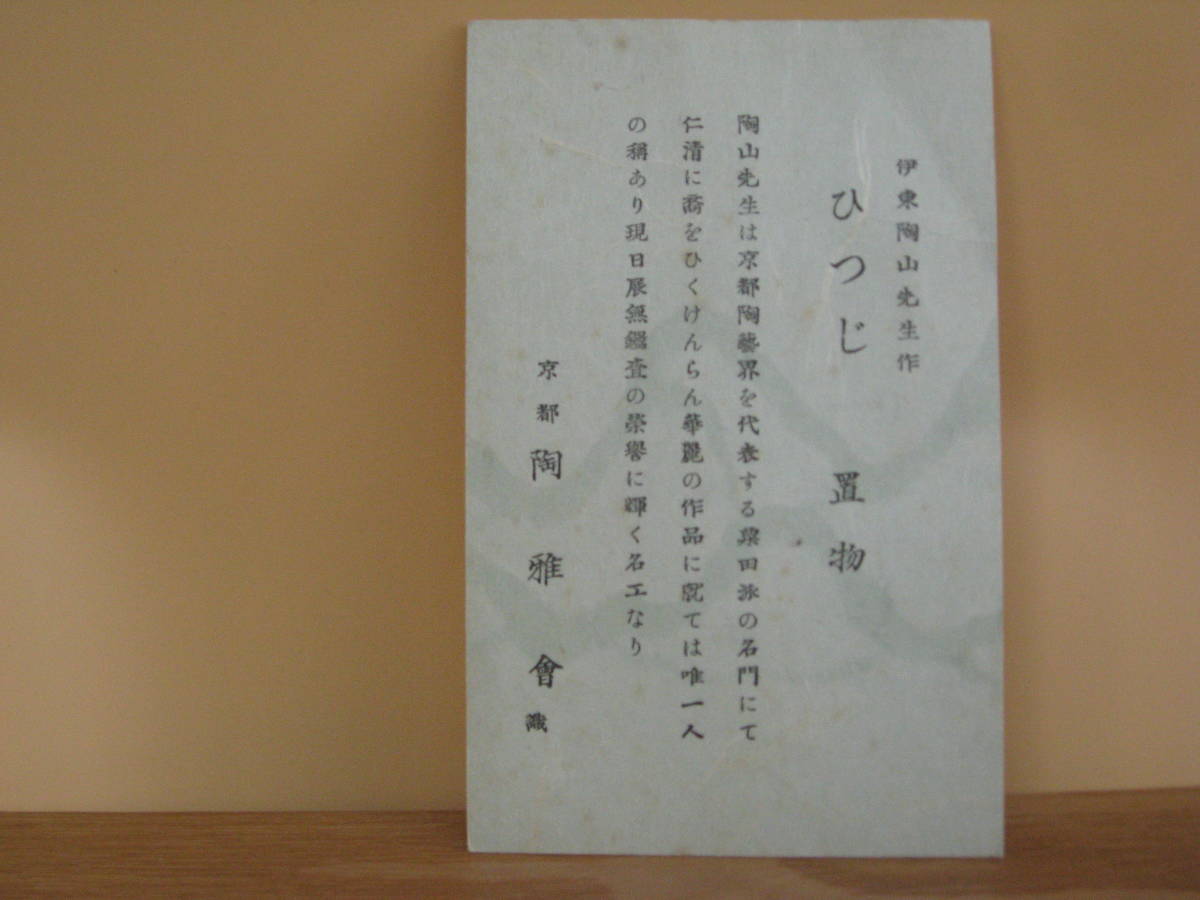 伊東陶山先生作
ひつじ 置物
陶山先生は京都陶藝界を代表する粟田派の名門にて
仁清に裔をひくけんらん華麗の作品に就ては唯一人
の稱あり現日展無鑑査の榮譽に輝く名工なり
京都 陶雅會 識